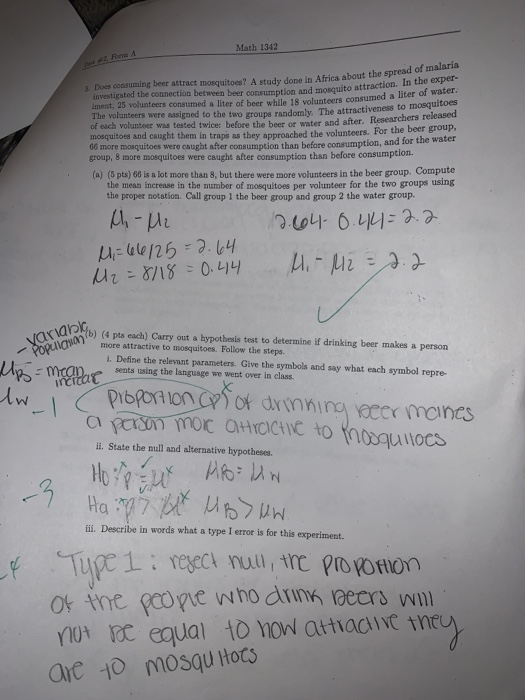 Math 1342
Form A
3. Does consuming beer attract mosquitoes? A study done in Africa about the spread of malaria
investigated the connection between beer consumption and mosquito attraction. In the exper-
iment, 25 volunteers consumed a liter of beer while 18 volunteers consumed a liter of water.
The volunteers were assigned to the two groups randomly. The attractiveness to mosquitoes
of each volunteer was tested twice: before the beer or water and after. Researchers released
mosquitoes and caught them in traps as they approached the volunteers. For the beer group,
66 more mosquitoes were caught after consumption than before consumption, and for the water
group, 8 more mosquitoes were caught after consumption than before consumption.
(a) (5 pts) 66 is a lot more than 8, but there were more volunteers in the beer group. Compute
the mean increase in the number of mosquitoes per volunteer for the two groups using
the proper notation. Call group 1 the beer group and group 2 the water group.
μ₁ - μ₂ 2.64 - 0.44 = 2.2
μ₁ = 66/25 = 2.64
μ₂ = 8/18 = 0.44 μ₁ - μ₂ = 2.2
- variable
- population
(b) (4 pts each) Carry out a hypothesis test to determine if drinking beer makes a person
more attractive to mosquitoes. Follow the steps.
i. Define the relevant parameters. Give the symbols and say what each symbol repre-
sents using the language we went over in class.
μB = mean
increase
μw
-1 proportion (p) of drinking beer makes
a person more attractive to mosquitoes
ii. State the null and alternative hypotheses.
-3
H₀: p = μ μB = μw
Ha: p > μ μB > μw
iii. Describe in words what a type I error is for this experiment.
-4
Type 1: reject null, the proportion
of the people who drink beers will
not be equal to how attractive they
are to mosquitoes